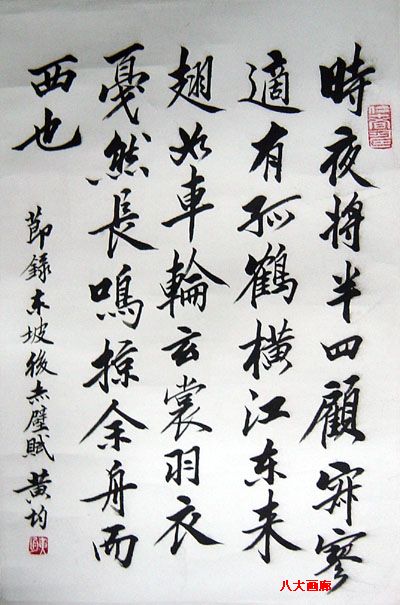 時夜將半四顧寂寥
適有孤鶴橫江东来
翅如車輪玄裳羽衣
戞然長鳴掠余舟而
西也
節錄东坡後赤壁賦 黃均
八大画廊